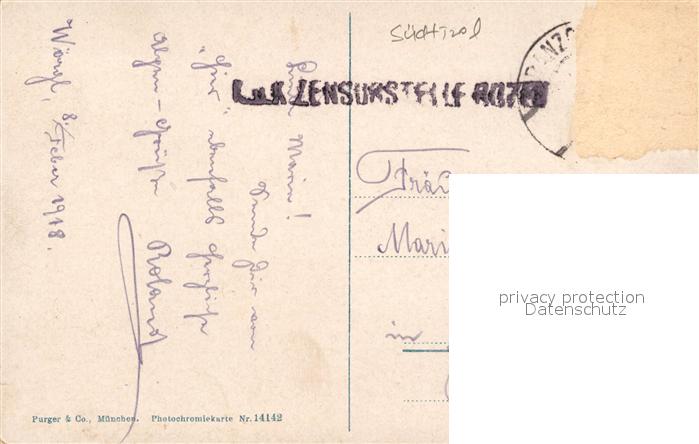 Südtirol
K.u.K. ZENSURSTELLE BOZEN
FRANZ
Liebe Marie!
Sende Dir von
"hier" ebenfalls herzliche
Grüße
Roland
Wörgl, 8./Feber 1918.
Fräu
Mari
in
privacy protection
Datenschutz
Purger & Co., München. Photochromiekarte Nr. 14142